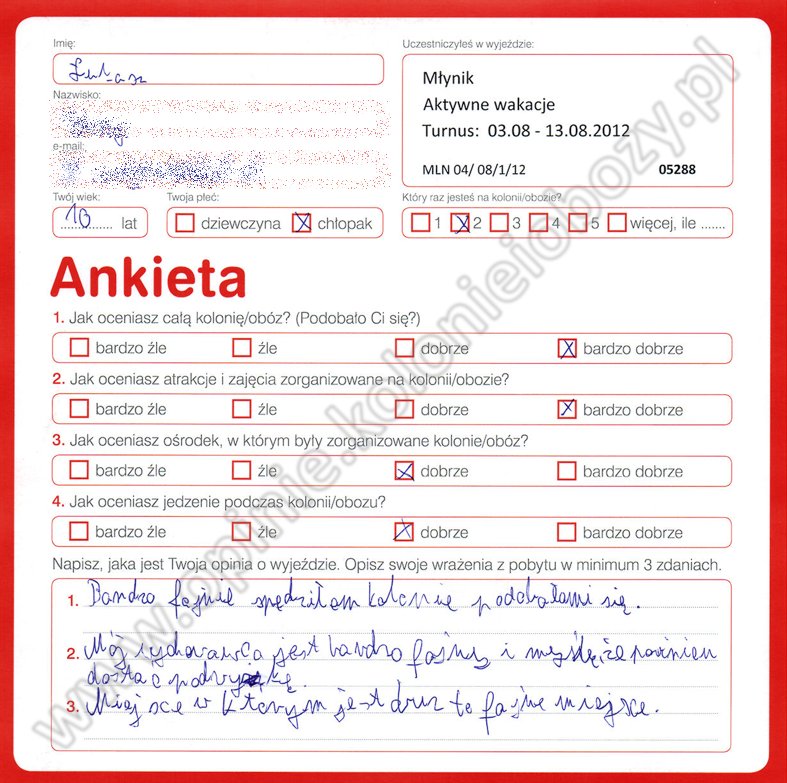 Imię:
Uczestniczyłeś w wyjeździe:
Łukasz
Młynik
Aktywne wakacje
Turnus: 03.08 - 13.08.2012
MLN 04/ 08/1/12 05288
Nazwisko:
e-mail:
Twój wiek: Twoja płeć: Który raz jesteś na kolonii/obozie?
10 lat dziewczyna X chłopak 1 X 2 3 4 5 więcej, ile .......
Ankieta
1. Jak oceniasz całą kolonię/obóz? (Podobało Ci się?)
bardzo źle źle dobrze X bardzo dobrze
2. Jak oceniasz atrakcje i zajęcia zorganizowane na kolonii/obozie?
bardzo źle źle dobrze X bardzo dobrze
3. Jak oceniasz ośrodek, w którym były zorganizowane kolonie/obóz?
bardzo źle źle X dobrze bardzo dobrze
4. Jak oceniasz jedzenie podczas kolonii/obozu?
bardzo źle źle X dobrze bardzo dobrze
Napisz, jaka jest Twoja opinia o wyjeździe. Opisz swoje wrażenia z pobytu w minimum 3 zdaniach.
1. Bardzo fajnie spędziłam kolonie podobałami się.
2. Mój wychowawca jest bardzo fajny i myślę, że powinien
dostać podwyżkę.
3. Miejsce w którym jest to fajne miejsce.
www.opinie.kolonieiobozy.pl